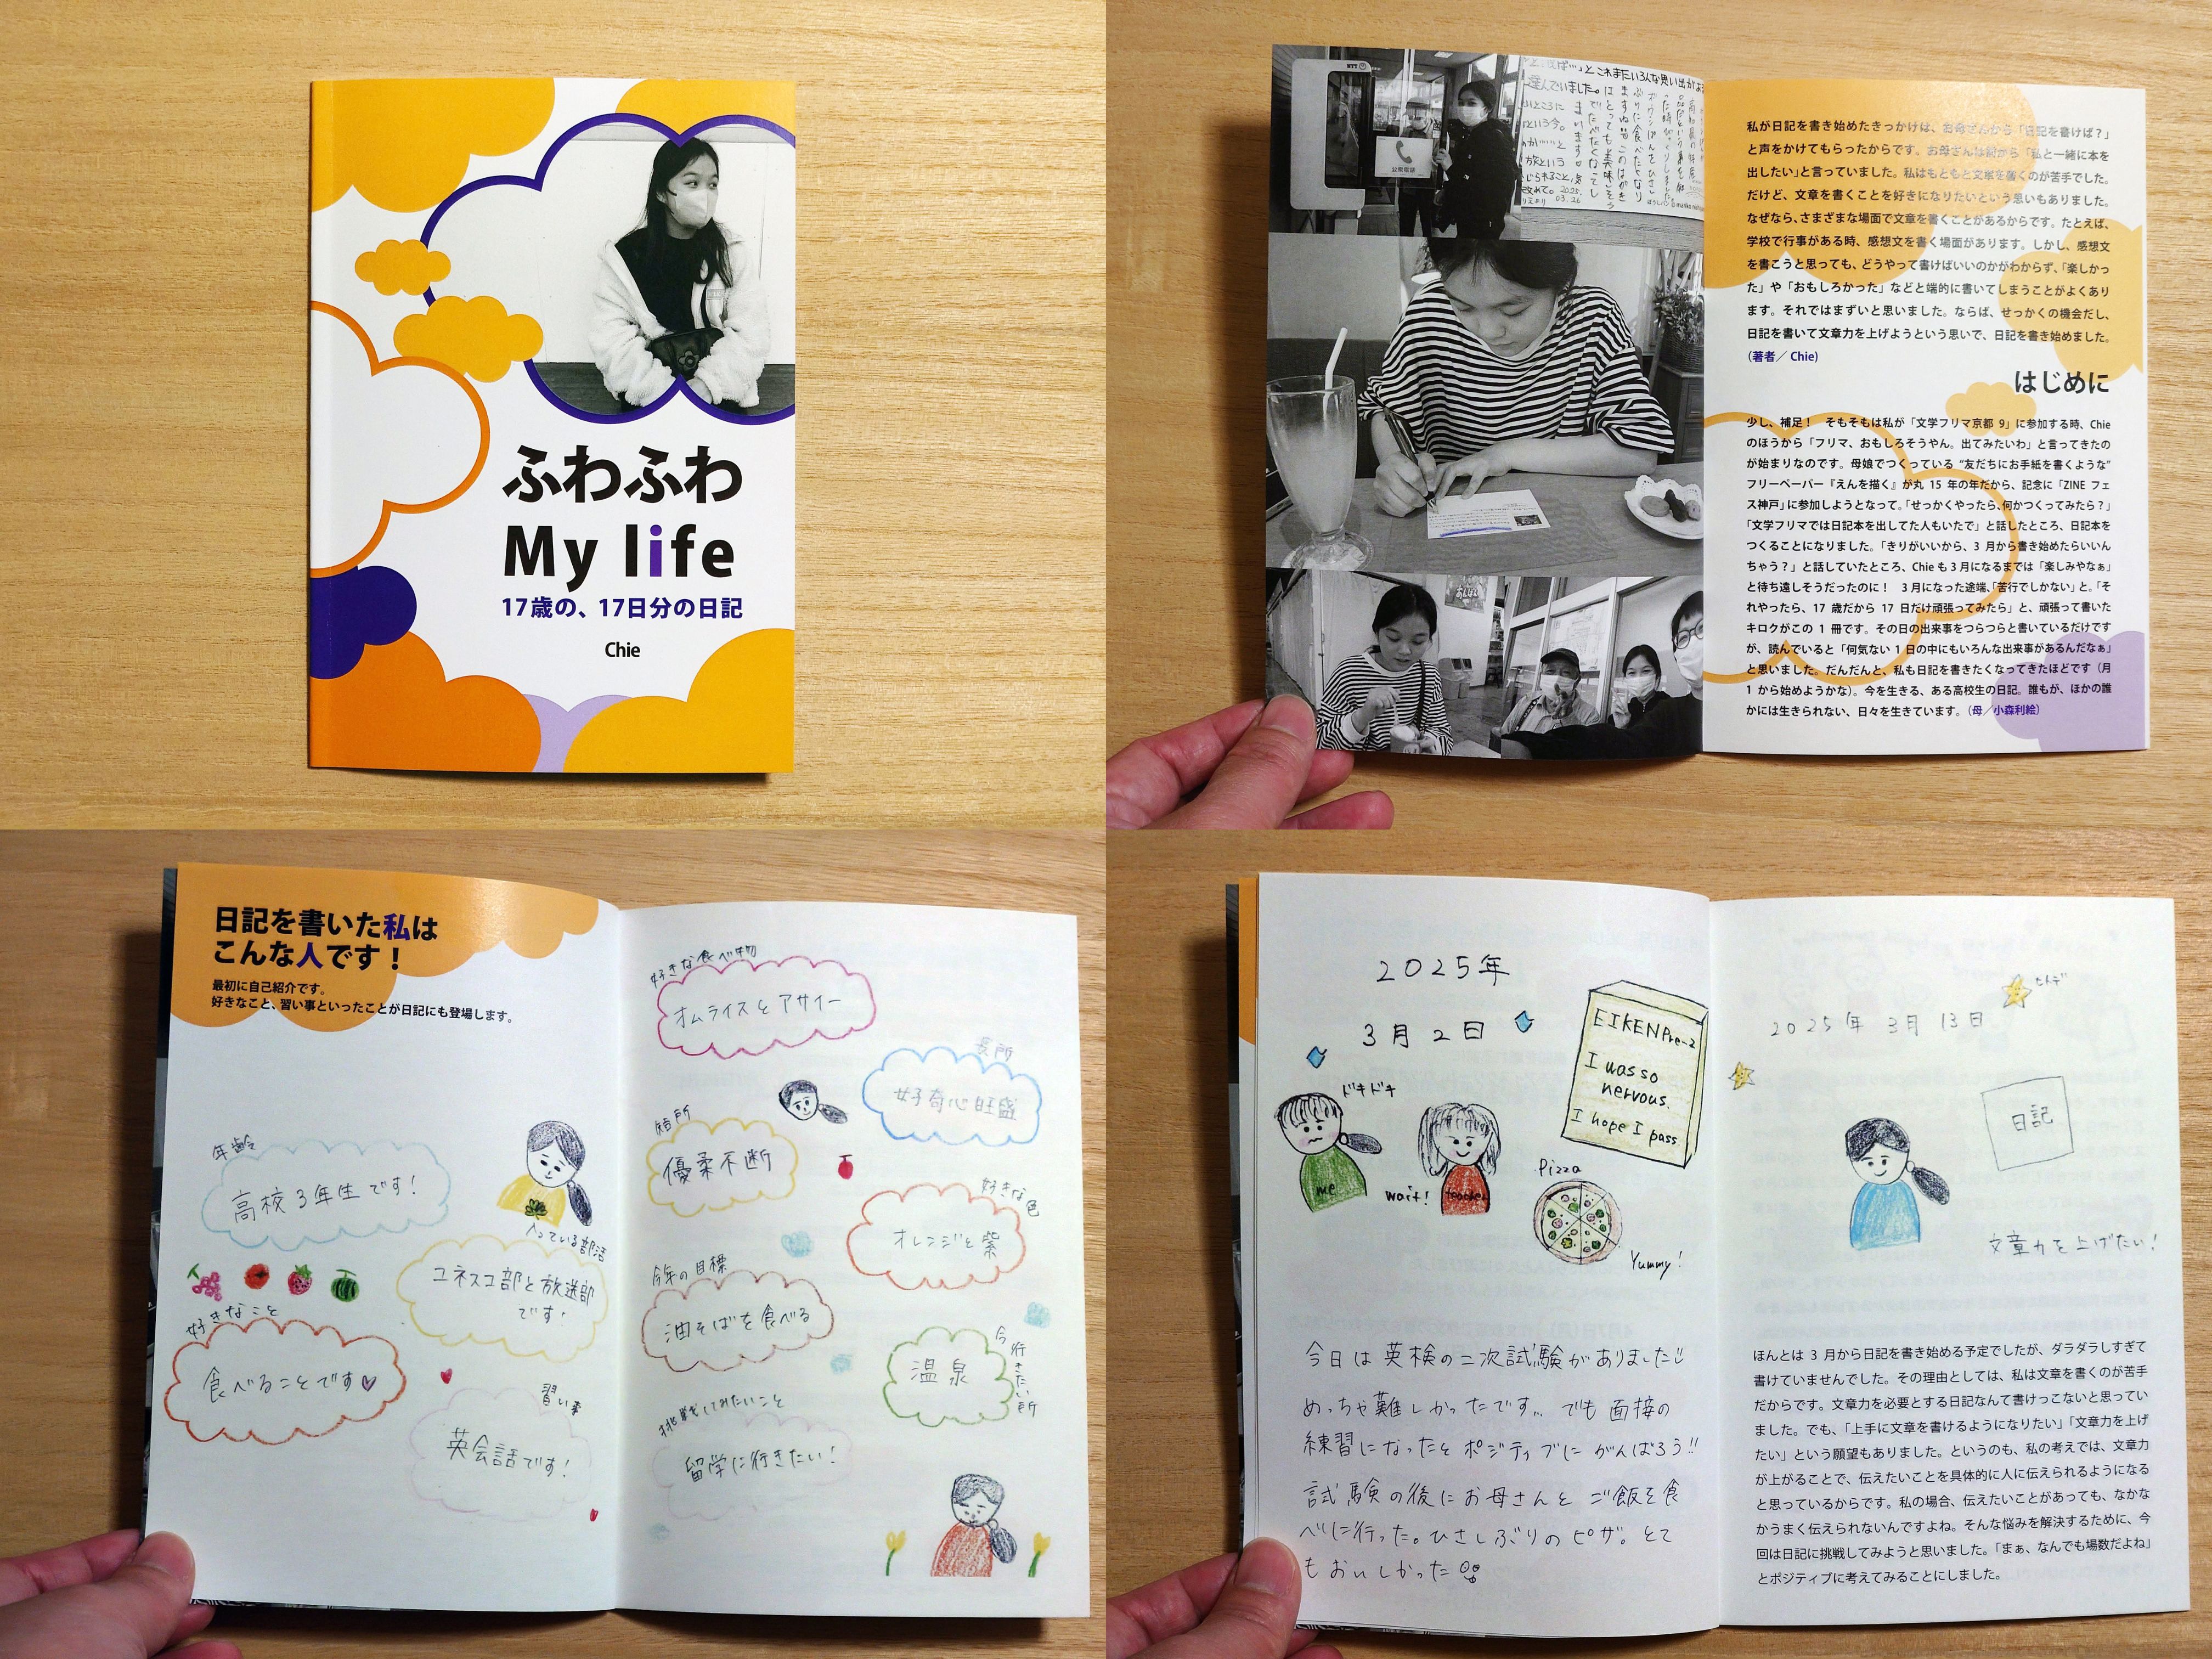 ふわふわ
My life
17歳の、17日分の日記
Chie
NTT
公衆電話
選んでいました。
2025.
03.26
私が日記を書き始めたきっかけは、お母さんから「日記を書けば？」
と声をかけてもらったからです。お母さんは前から「私と一緒に本を
出したい」と言っていました。私はもともと文章を書くのが苦手でした。
だけど、文章を書くことを好きになりたいという思いもありました。
なぜなら、さまざまな場面で文章を書くことがあるからです。たとえば、
学校で行事がある時、感想文を書く場面があります。しかし、感想文
を書こうと思っても、どうやって書けばいいのかがわからず、「楽しかっ
た」や「おもしろかった」などと端的に書いてしまうことがよくあり
ます。それではまずいと思いました。ならば、せっかくの機会だし、
日記を書いて文章力を上げようという思いで、日記を書き始めました。
（著者／ Chie）
はじめに
少し、補足！　そもそもは私が「文学フリマ京都 9」に参加する時、Chie
のほうから「フリマ、おもしろそうやん。出てみたいわ」と言ってきたの
が始まりなのです。母娘でつくっている “友だちにお手紙を書くような”
フリーペーパー『えんを描く』が丸 15 年の年だから、記念に「ZINE フェ
ス神戸」に参加しようとなって。「せっかくやったら、何かつくってみたら？」
「文学フリマでは日記本を出してた人もいたで」と話したところ、日記本を
つくることになりました。「きりがいいから、3 月から書き始めたらいいん
ちゃう？」と話していたところ、Chie も 3 月になるまでは「楽しみやなぁ」
と待ち遠しそうだったのに！　3 月になった途端、「苦行でしかない」と。「そ
れやったら、17 歳だから 17 日だけ頑張ってみたら」と、頑張って書いた
キロクがこの 1 冊です。その日の出来事をつらつらと書いているだけです
が、読んでいると「何気ない 1 日の中にもいろんな出来事があるんだなぁ」
と思いました。だんだんと、私も日記を書きたくなってきたほどです（月
1 から始めようかな）。今を生きる、ある高校生の日記。誰もが、ほかの誰
かには生きられない、日々を生きています。（母／小森利絵）
日記を書いた私は
こんな人です！
最初に自己紹介です。
好きなこと、習い事といったことが日記にも登場します。
年齢
高校3年生です！
入っている部活
ユネスコ部と放送部
です！
好きなこと
食べることです♡
習い事
英会話です！
好きな食べ物
オムライスとアサイー
長所
好奇心旺盛
短所
優柔不断
好きな色
オレンジと紫
今年の目標
油そばを食べる
今行きたい所
温泉
挑戦してみたいこと
留学に行きたい！
2025年
3月2日
EIKEN Pre-2
I was so
nervous.
I hope I pass
ドキドキ
me
wait!
teacher
Pizza
Yummy!
今日は英検の二次試験がありました
めっちゃ難しかったです… でも面接の
練習になったとポジティブにがんばろう!!
試験の後にお母さんとご飯を食
べに行った。ひさしぶりのピザ。とて
もおいしかった
2025年3月13日
日記
文章力を上げたい！
ほんとは 3 月から日記を書き始める予定でしたが、ダラダラしすぎて
書けていませんでした。その理由としては、私は文章を書くのが苦手
だからです。文章力を必要とする日記なんて書けっこないと思ってい
ました。でも、「上手に文章を書けるようになりたい」「文章力を上げ
たい」という願望もありました。というのも、私の考えでは、文章力
が上がることで、伝えたいことを具体的に人に伝えられるようになる
と思っているからです。私の場合、伝えたいことがあっても、なかな
かうまく伝えられないんですよね。そんな悩みを解決するために、今
回は日記に挑戦してみようと思いました。「まぁ、なんでも場数だよね」
とポジティブに考えてみることにしました。